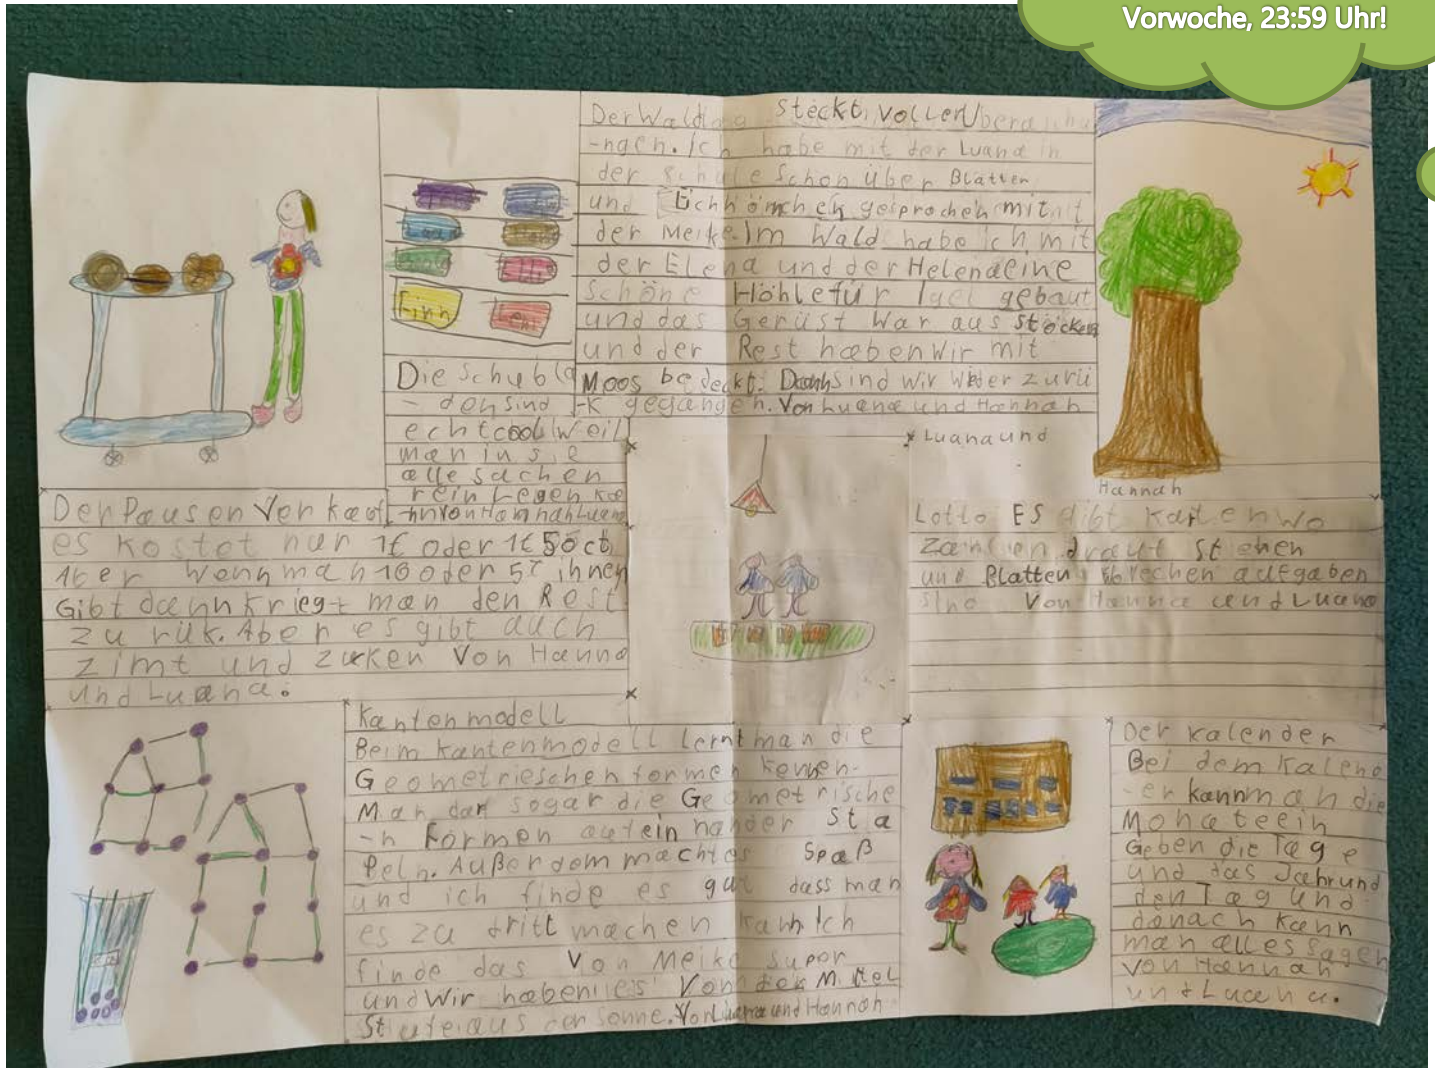 Vorwoche, 23:59 Uhr!
Der Waldtag steckt voller Überaschu
-ngen. Ich habe mit der Luana in
der Schule schon über Blätter
und Eichhörnchen gesprochen mit
der Meike. Im Wald habe ich mit
der Elena und der Helena eine
schöne Höhle für Igel gebaut
und das Gerüst war aus Stöcken
und der Rest haben wir mit
Moos bedeckt. Dann sind wir wider zurü
-k gegangen. Von Luana und Hannah
Finn
Leni
Die Schubla
-den sind
echt cool weil
man in sie
alle sachen
rein Legen ka
-nn von Hannah Luana
Luana und
Hannah
Der Pausen Verkauf
es kostet nur 1€ oder 1€ 50ct
Aber wenn man 10 oder 5€ ihnen
Gibt dann kriegt man den Rest
zu rük. Aber es gibt auch
zimt und zuken Von Hanna
und Luana.
Lotto ES gibt karten wo
Zahlen drauf stehen
und Blatten aufgaben
sind Von Hanna und Luana
Kantenmodell
Beim kantenmodell lernt man die
Geometrieschen formen kennen.
Man darf sogar die Geometrische
-n Formen aufeinander sta
Peln. Außerdem macht es Spaß
und ich finde es gut dass man
es zu dritt machen kann Ich
finde das Von Meike super
und Wir haben es Von der Mittel
Stufe aus der Sonne. Von Luana und Hannah
Der kalender
Bei dem Kalend
-er kann man die
Monate ein
Geben die Tage
und das Jahr und
den Tag und
danach kann
man alles sagen
von Hannah
und Luana.